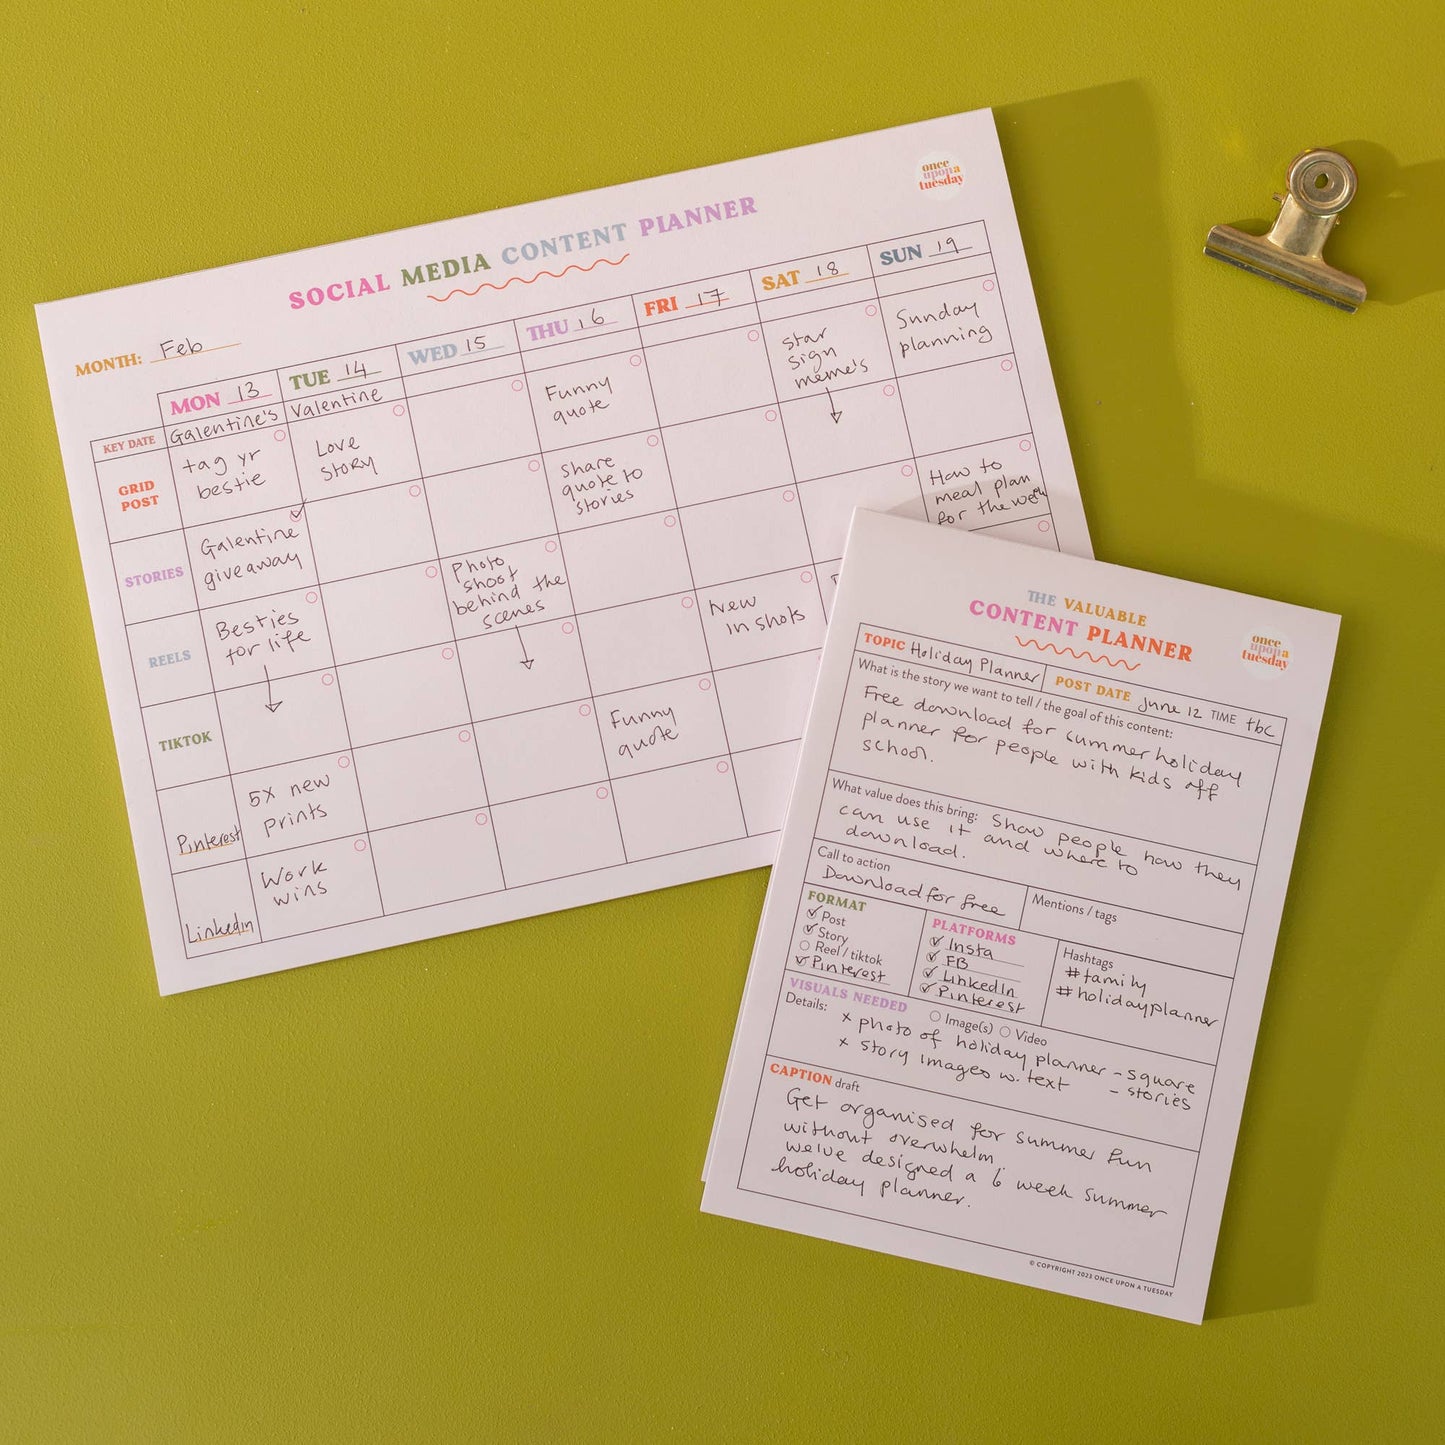 once
upon a
tuesday
SOCIAL MEDIA CONTENT PLANNER
MONTH: Feb
MON 13 TUE 14 WED 15 THU 16 FRI 17 SAT 18 SUN 19
KEY DATE Galentine's Valentine
GRID
POST
tag yr
bestie
Love
story
Funny
quote
star
sign
meme's
Sunday
planning
STORIES
Galentine
giveaway
share
quote to
stories
REELS
Besties
for life
Photo
shoot
behind the
scenes
How to
meal plan
for the week
TIKTOK
New
in shots
Pinterest
5x new
prints
Funny
quote
LinkedIn
Work
wins
THE VALUABLE
CONTENT PLANNER
once
upon a
tuesday
TOPIC Holiday Planner POST DATE June 12 TIME tbc
What is the story we want to tell / the goal of this content:
Free download for summer holiday
planner for people with kids off
school.
What value does this bring: Show people how they
can use it and where to
download.
Call to action
Download for free
Mentions / tags
FORMAT
Post
Story
Reel / tiktok
Pinterest
PLATFORMS
Insta
FB
LinkedIn
Pinterest
Hashtags
#family
#holidayplanner
VISUALS NEEDED Image(s) Video
Details: x photo of holiday planner - square
x story images w. text - stories
CAPTION draft
Get organised for summer fun
without overwhelm.
we've designed a 6 week summer
holiday planner.
© COPYRIGHT 2023 ONCE UPON A TUESDAY